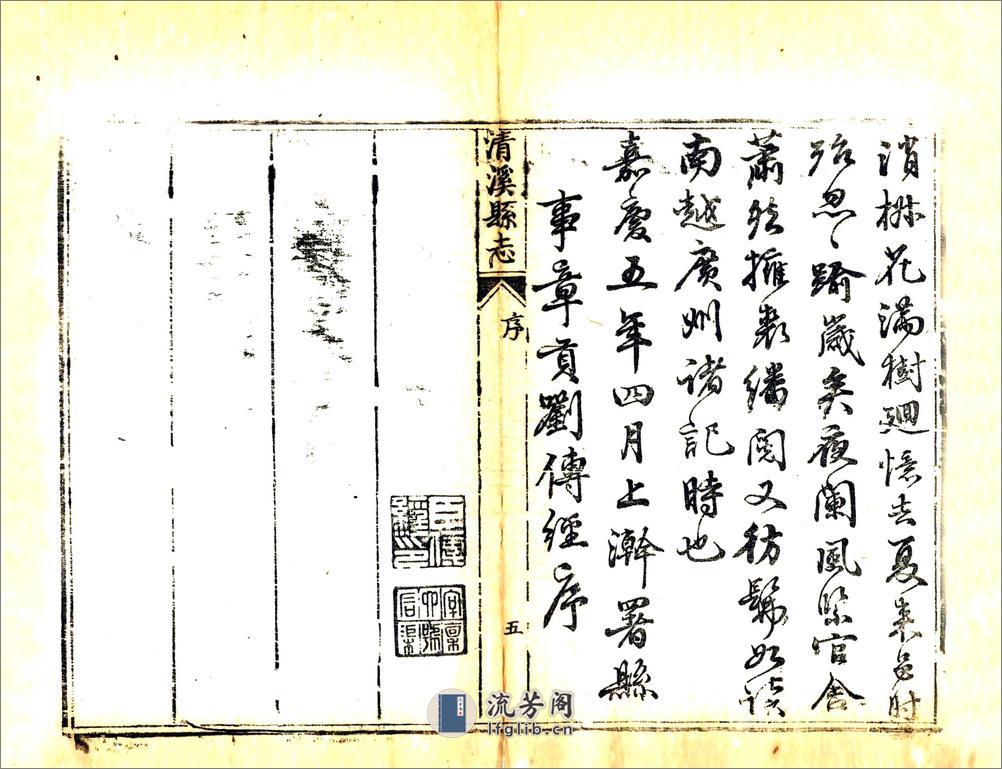 消梛花滿樹廻憶去夏来邑时
殆忽〻踰歲矣夜闌風緊官舍
蕭然擁裘繙閱又彷髴如讀
南越廣州諸記時也
嘉慶五年四月上澣署縣
事章貢劉傳經序
清溪縣志
序
五
臣傳經印
流芳阁
lfglib.cn